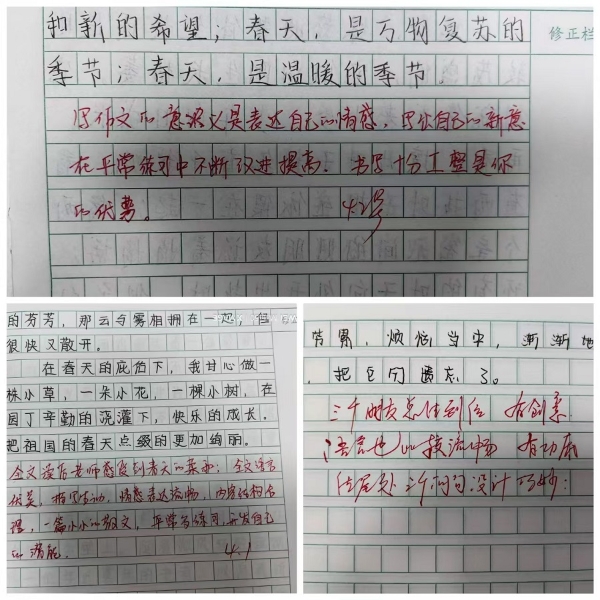 和新的希望；春天，是万物复苏的
季节；春天，是温暖的季节。
修正栏
写作文的意义是表达自己的情感，写出自己的新意
在平常练习中不断改进提高。书写十分工整是你
的优势。
的芬芳，那云与雾相拥在一起，但
很快又散开。
在春天的庇佑下，我甘心做一
株小草，一朵小花，一棵小树，在
园丁辛勤的浇灌下，快乐的成长，
把祖国的春天点缀的更加绚丽。
全文读后老师感受到春天的美妙；全文语言
优美，描写生动，情感表达流畅，内容结构合
理，一篇小小的散文，平常多练习，开发自己
的潜能。
4.1
劳累，烦恼当中，渐渐地
，把它们遗忘了。
三个朋友总结到位 有创意
语言也比较流畅 有功底
结尾处三个问句设计巧妙